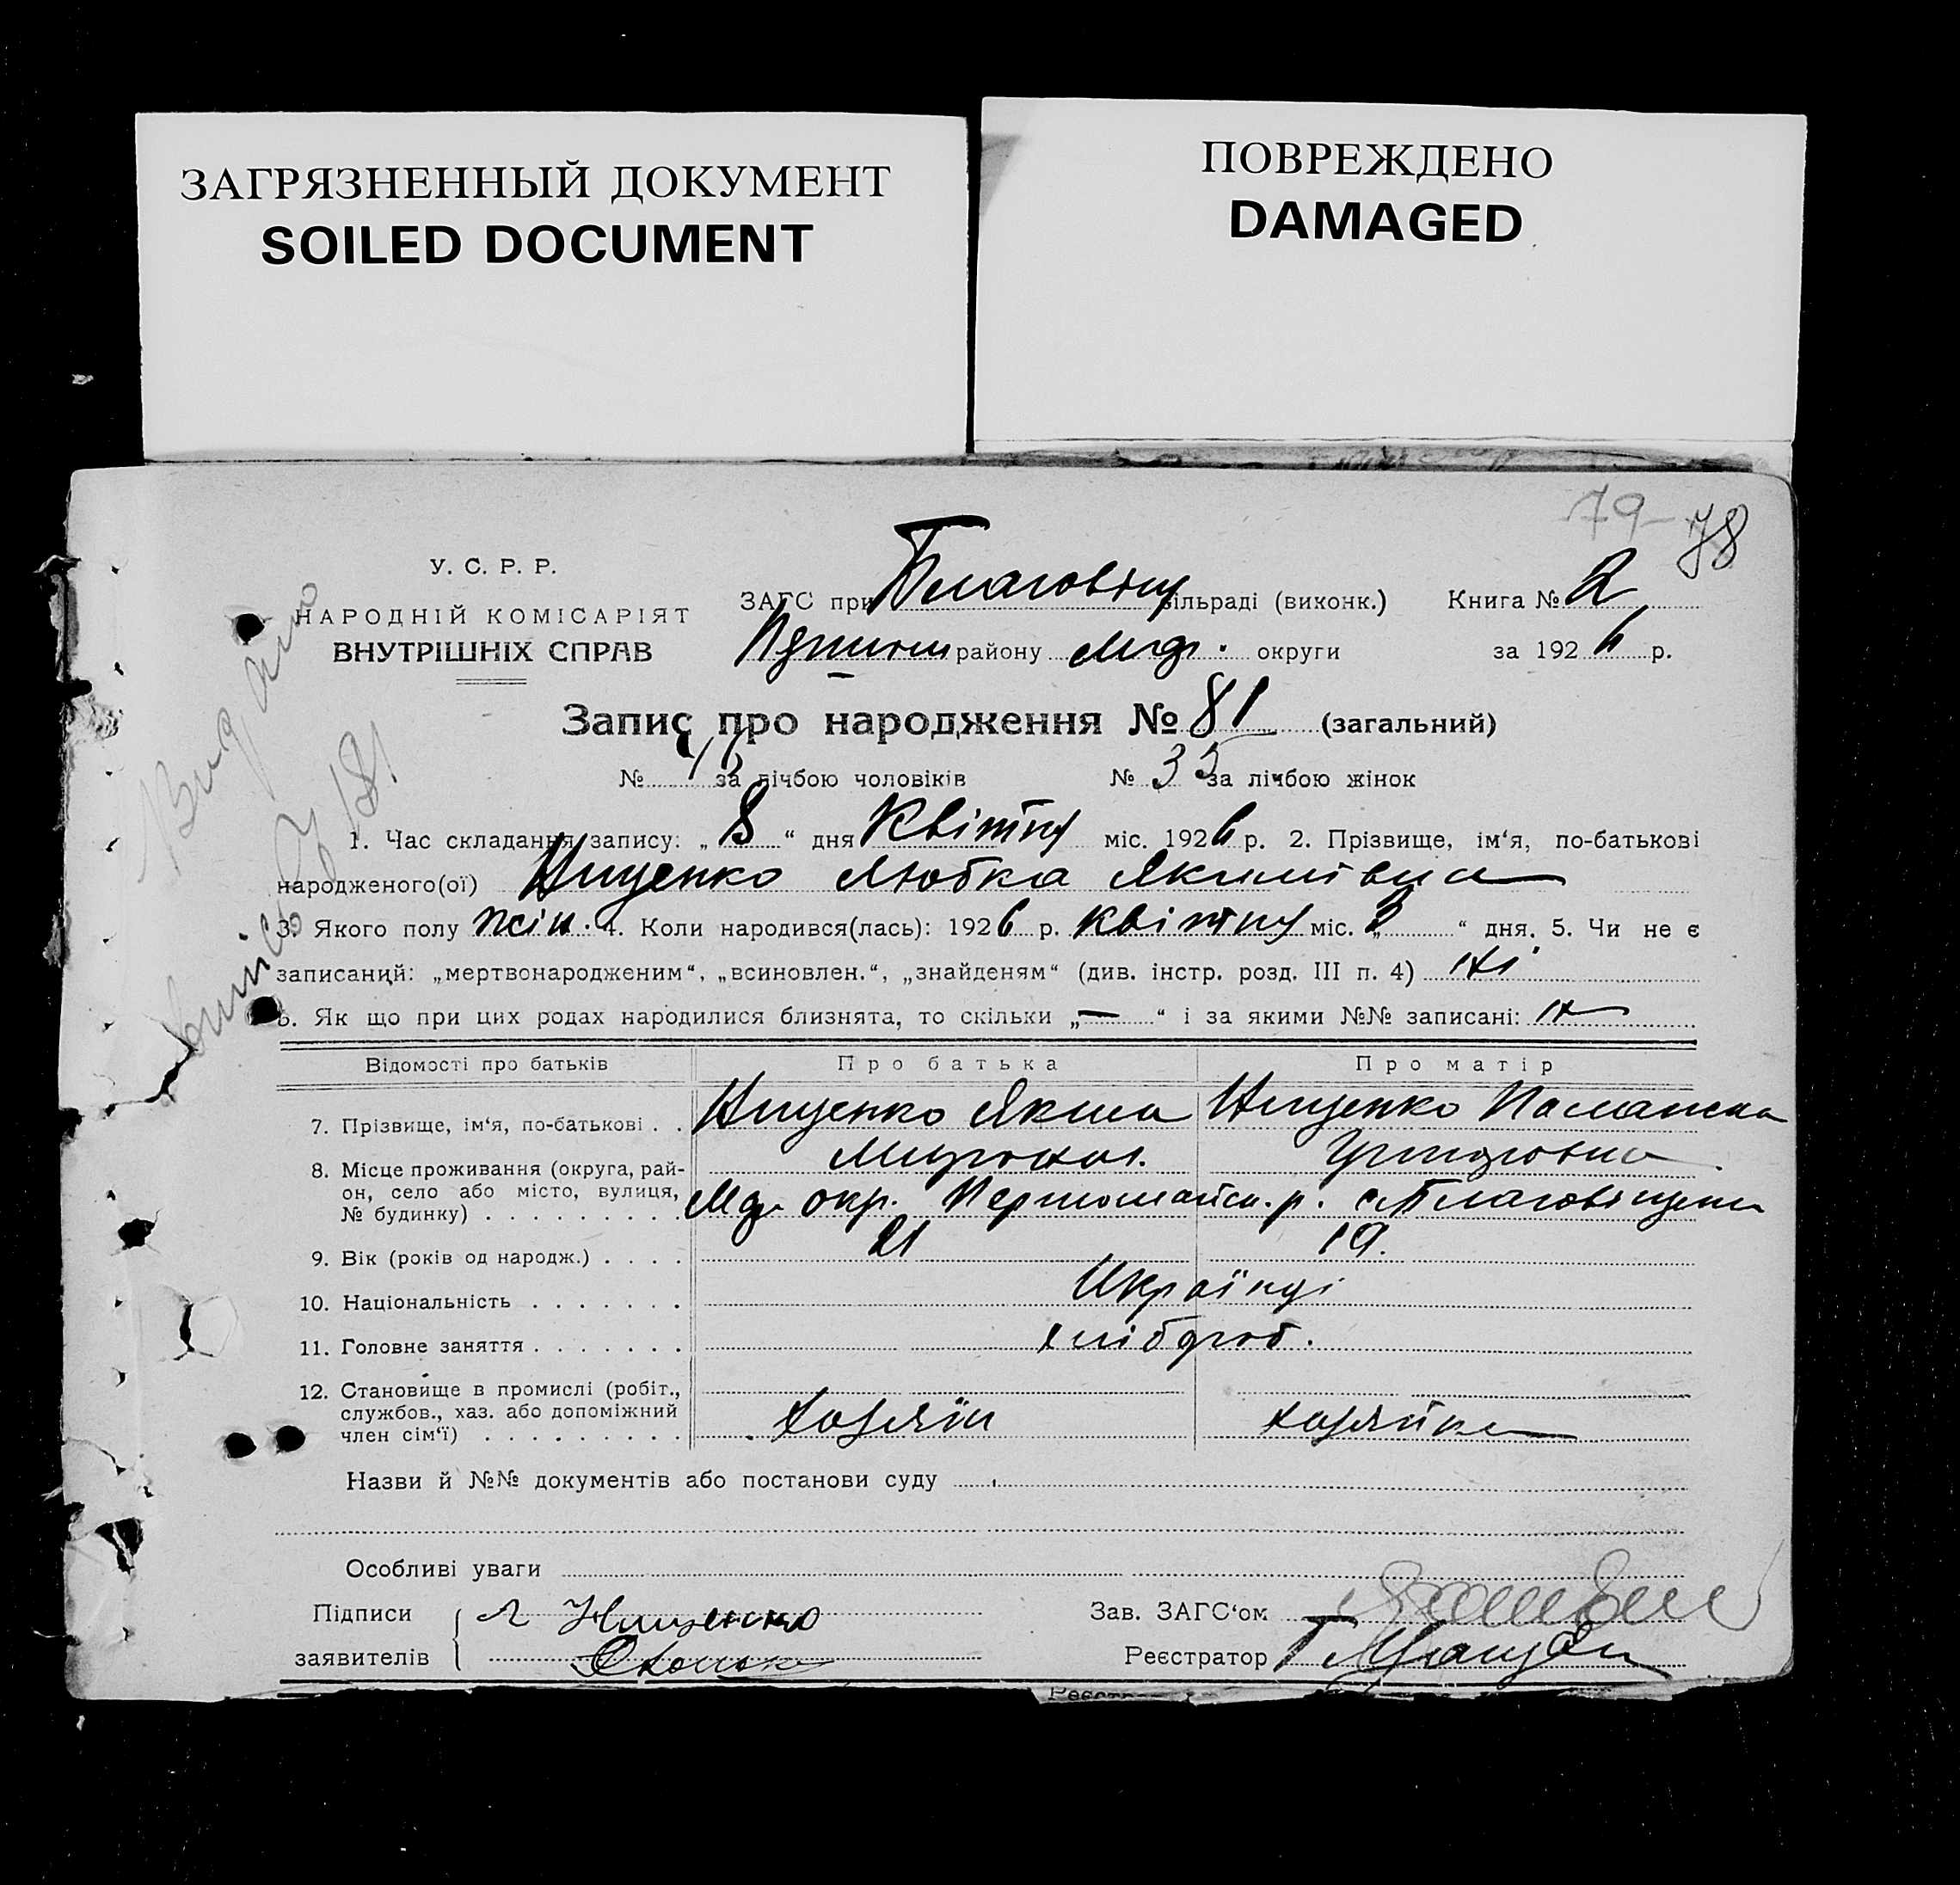 ЗАГРЯЗНЕННЫЙ ДОКУМЕНТ
SOILED DOCUMENT
ПОВРЕЖДЕНО
DAMAGED
79 78
У. С. Р. Р.
НАРОДНІЙ КОМІСАРІЯТ
ВНУТРІШНІХ СПРАВ
ЗАГС при Благовіщ сільраді (виконк.) Книга № 2
району округи за 1926 р.
Запис про народження № 81 (загальний)
№ за лічбою чоловіків № 35 за лічбою жінок
1. Час складання запису: „8“ дня Квітня міс. 1926 р. 2. Прізвище, ім‘я, по-батькові
народженого(ої) Нищенко Любка Якимівна
3. Якого полу жін. 4. Коли народився(лась): 1926 р. квітня міс. „ “ дня. 5. Чи не є
записаний: „мертвонародженим“, „всиновлен.“, „знайденям“ (див. інстр. розд. III п. 4) ні
6. Як що при цих родах народилися близнята, то скільки „—“ і за якими №№ записані:
Відомості про батьків Про батька Про матір
7. Прізвище, ім‘я, по-батькові . . Нищенко Яким Нищенко
8. Місце проживання (округа, рай-
он, село або місто, вулиця,
№ будинку) . . . . . . . . . окр. Первомайск. р. с. Благовіщен
9. Вік (років од народж.) . . . . 21 19.
10. Національність . . . . . . . Українці
11. Головне заняття . . . . . . . хлібороб.
12. Становище в промислі (робіт.,
службов., хаз. або допоміжний
член сім‘ї) . . . . . . . . . хозяїн хозяйка
Назви й №№ документів або постанови суду
Особливі уваги
Підписи Нищенко Зав. ЗАГС‘ом
заявителів Реєстратор